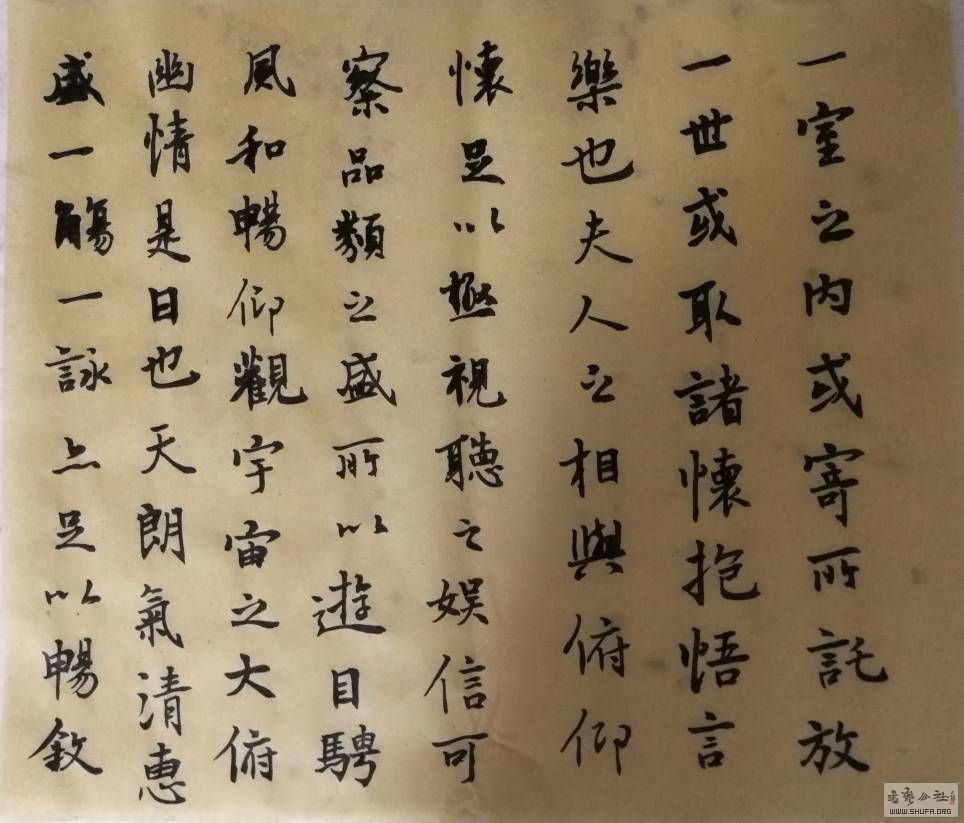 盛一觴一詠亦足以暢敘
幽情是日也天朗氣清惠
風和暢仰觀宇宙之大俯
察品類之盛所以遊目騁
懷足以極視聽之娛信可
樂也夫人之相與俯仰
一世或取諸懷抱悟言
一室之内或寄所託放
WWW.SHUFA.ORG